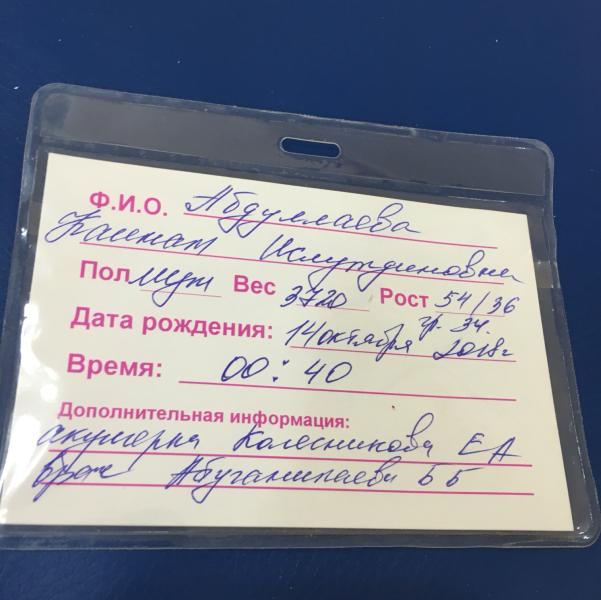 Ф.И.О. Абдуллаева
Пол муж Вес 3720 Рост 54/36
гр. 34.
Дата рождения: 14 октября 2018г
Время: 00:40
Дополнительная информация:
акушерка Колесникова ЕА
врач ББ